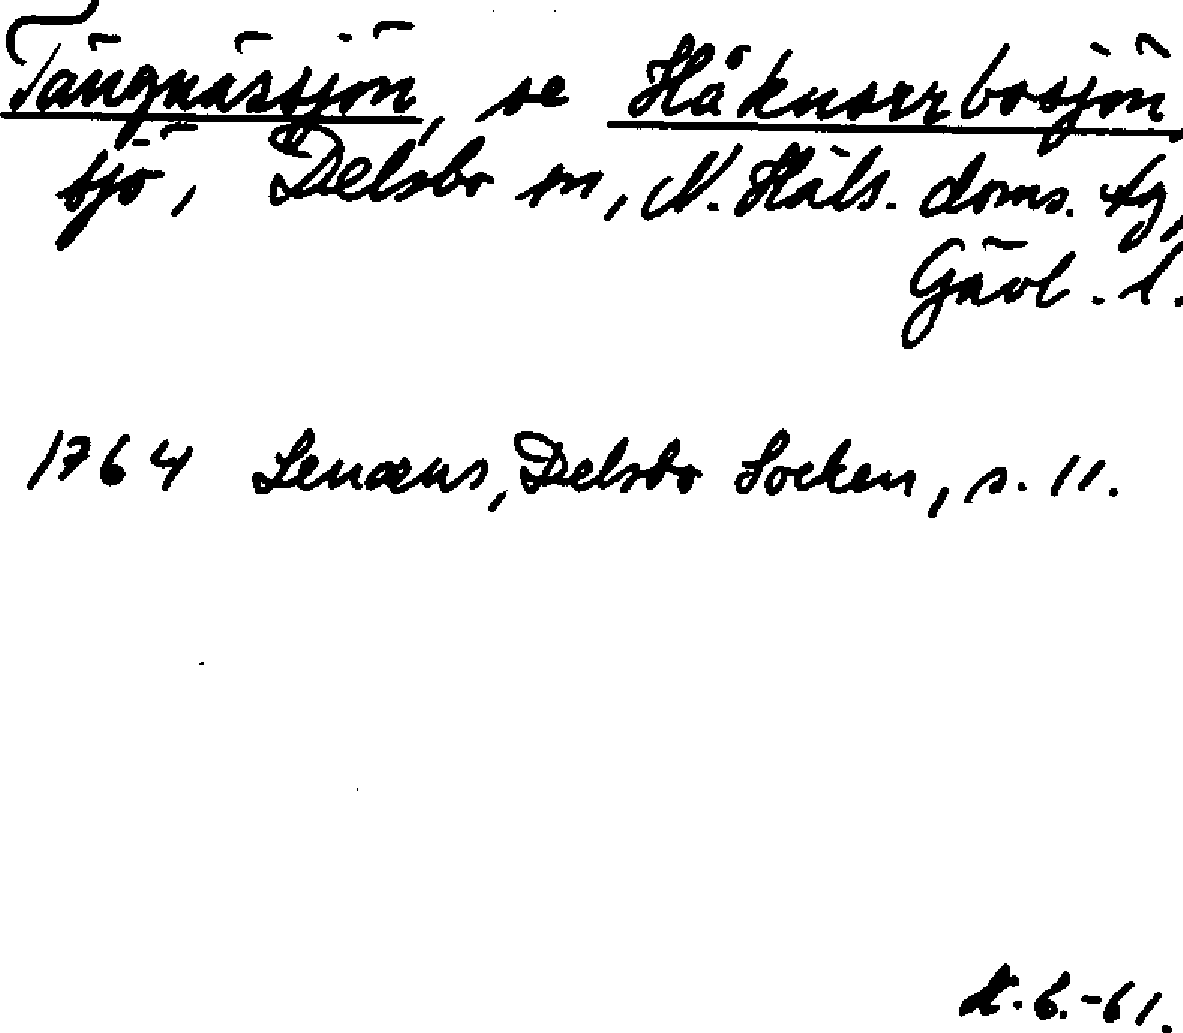 Tängnässjön, se Håknorrbosjön
sjö, Delsbo sn, N. Häls. doms. tg,
Gävl. l.
1764 Lenæus, Delsbo Socken, s. 11.
-61.